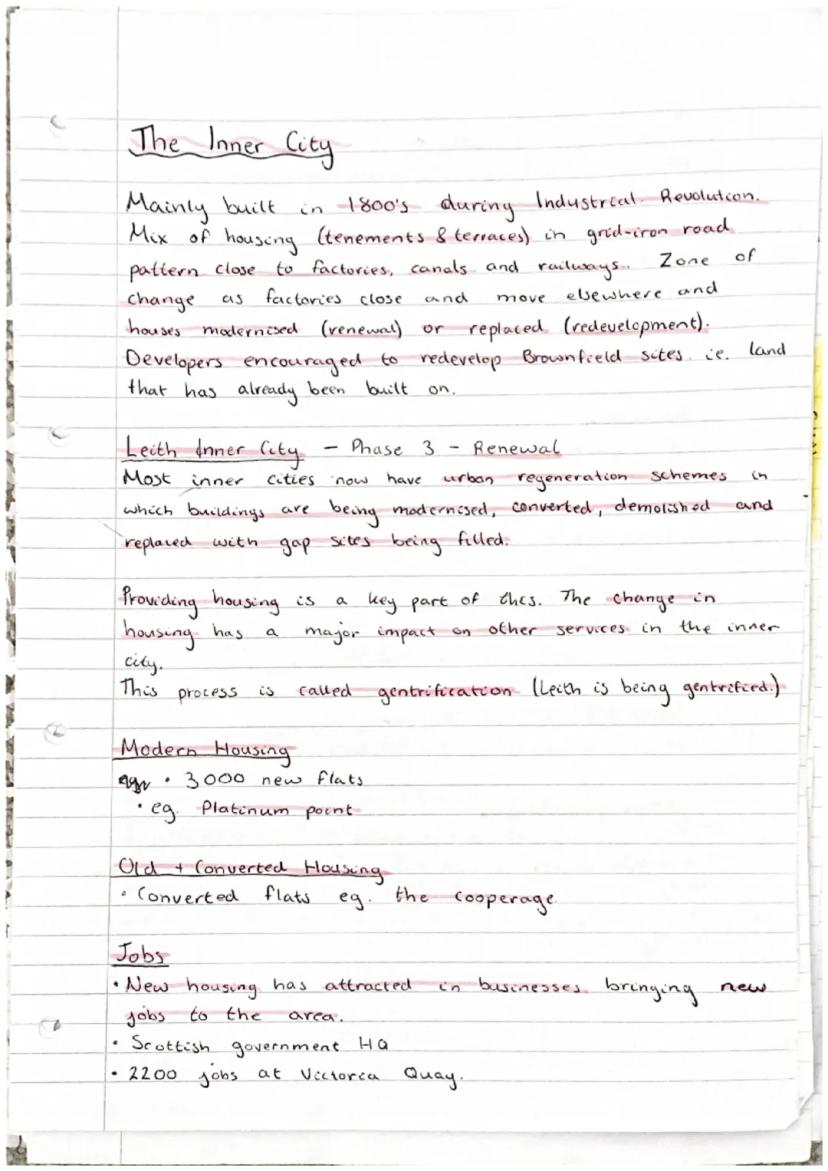 The Inner City
Mainly built in 1800's during Industrial Revolution.
Mix of housing (tenements & terraces) in grid-iron road
pattern close to factories, canals and railways. Zone of
change as factories close and move elsewhere and
houses modernised (renewal) or replaced (redevelopment).
Developers encouraged to redevelop Brownfield sites. ie. land
that has already been built on.
Leith Inner City - Phase 3 - Renewal
Most inner cities now have urban regeneration schemes in
which buildings are being modernised, converted, demolished and
replaced with gap sites being filled.
Providing housing is a key part of this. The change in
housing has a major impact on other services in the inner
city.
This process is called gentrification (Leith is being gentrified.)
Modern Housing
• 3000 new flats
• eg. Platinum point
Old + Converted Housing
• Converted flats eg. the cooperage
Jobs
• New housing has attracted in businesses bringing new
jobs to the area.
• Scottish government HQ
• 2200 jobs at Victoria Quay.